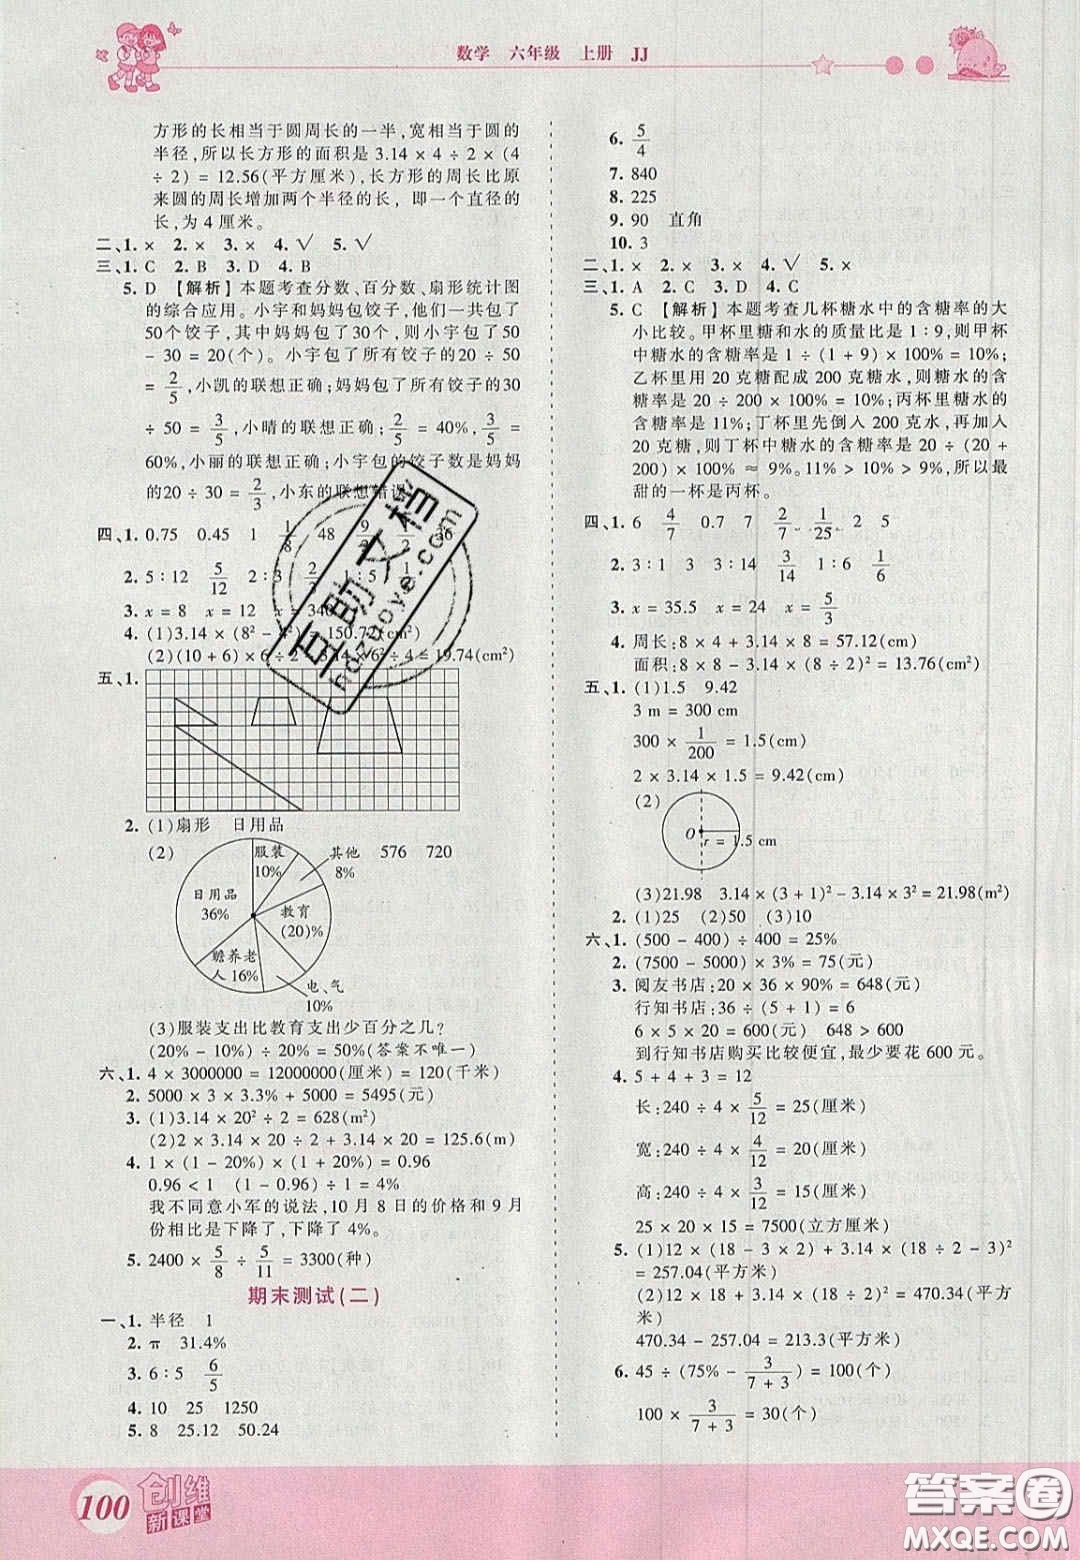 数学 六年级 上册 JJ
方形的长相当于圆周长的一半,宽相当于圆的
半径,所以长方形的面积是 3.14 × 4 ÷ 2 × (4
÷ 2) = 12.56(平方厘米),长方形的周长比原
来圆的周长增加两个半径的长,即一个直径的
长,为 4 厘米。
二、1. × 2. × 3. × 4. √ 5. √
三、1. C 2. B 3. D 4. B
5. D 【解析】本题考查分数、百分数、扇形统计图
的综合应用。小宇和妈妈包饺子,他们一共包了
50个饺子,其中妈妈包了30个,则小宇包了50
- 30 = 20(个)。小宇包了所有饺子的20 ÷ 50
= 2/5,小凯的联想正确;妈妈包了所有饺子的30
÷ 50 = 3/5,小晴的联想正确;2/5 = 40%,3/5 =
60%,小丽的联想正确;小宇包的饺子数是妈妈
的20 ÷ 30 = 2/3,小东的联想错误
四、1. 0.75 0.45 1 1/8 48
2. 5∶12 5/12 2∶3
3. x = 8 x = 18 x = 340
4. (1)3.14 × (8² - 4²) = 150.72(cm²)
(2)(10 + 6) × 6 ÷ 2 - 3.14 × 6² ÷ 4 = 19.74(cm²)
五、1.
2. (1)扇形 日用品
(2) 服装 10% 其他 8% 576 720
日用品 36%
教育 (20)%
赡养老人 16%
电、气 10%
(3)服装支出比教育支出少百分之几?
(20% - 10%) ÷ 20% = 50%(答案不唯一)
六、1. 4 × 3000000 = 12000000(厘米) = 120(千米)
2. 5000 × 3 × 3.3% + 5000 = 5495(元)
3. (1)3.14 × 20² ÷ 2 = 628(m²)
(2)2 × 3.14 × 20 ÷ 2 + 3.14 × 20 = 125.6(m)
4. 1 × (1 - 20%) × (1 + 20%) = 0.96
0.96 < 1 (1 - 0.96) ÷ 1 = 4%
我不同意小军的说法,10 月 8 日的价格和 9 月
份相比是下降了,下降了 4%。
5. 2400 × 5/8 ÷ 5/11 = 3300(种)
期末测试(二)
一、1. 半径 1
2. π 31.4%
3. 6∶5 6/5
4. 10 25 1250
5. 8 25.12 50.24
6. 5/4
7. 840
8. 225
9. 90 直角
10. 3
二、1. × 2. × 3. × 4. √ 5. ×
三、1. A 2. C 3. D 4. C
5. C 【解析】本题考查几杯糖水中的含糖率的大
小比较。甲杯里糖和水的质量比是 1∶9,则甲杯
中糖水的含糖率是 1 ÷ (1 + 9) × 100% = 10%;
乙杯里用 20 克糖配成 200 克糖水,则乙杯糖水的
含糖率是 20 ÷ 200 × 100% = 10%;丙杯里糖水的
含糖率是 11%;丁杯里先倒入 200克水,再加入
20 克糖,则丁杯中糖水的含糖率是 20 ÷ (20 +
200) × 100% ≈ 9%。11% > 10% > 9%,所以最
甜的一杯是丙杯。
四、1. 6 4/7 0.7 7 2/7 1/25 2 5
2. 3∶1 3 3∶14 3/14 1∶6 1/6
3. x = 35.5 x = 24 x = 5/3
4. 周长:8 × 4 + 3.14 × 8 = 57.12(cm)
面积:8 × 8 - 3.14 × (8 ÷ 2)² = 13.76(cm²)
五、1. (1)1.5 9.42
3 m = 300 cm
300 × 1/200 = 1.5(cm)
2 × 3.14 × 1.5 = 9.42(cm)
(2)
O r = 1.5 cm
(3)21.98 3.14 × (3 + 1)² - 3.14 × 3² = 21.98(m²)
2. (1)25 (2)50 (3)10
六、1. (500 - 400) ÷ 400 = 25%
2. (7500 - 5000) × 3% = 75(元)
3. 阅友书店:20 × 36 × 90% = 648(元)
行知书店:36 ÷ (5 + 1) = 6
6 × 5 × 20 = 600(元) 648 > 600
到行知书店购买比较便宜,最少要花 600 元。
4. 5 + 4 + 3 = 12
长:240 ÷ 4 × 5/12 = 25(厘米)
宽:240 ÷ 4 × 4/12 = 20(厘米)
高:240 ÷ 4 × 3/12 = 15(厘米)
25 × 20 × 15 = 7500(立方厘米)
5. (1)12 × (18 - 3 × 2) + 3.14 × (12 ÷ 2 - 3)²
= 257.04(平方米)
(2)12 × 18 + 3.14 × (12 ÷ 2)² = 470.34(平方
米)
470.34 - 257.04 = 213.3(平方米)
6. 45 ÷ (75% - 3/(7 + 3)) = 100(个)
100 × 3/(7 + 3) = 30(个)
100 创维新课堂
互助文档
hdzuoye.com
答案圈
MXQE.COM